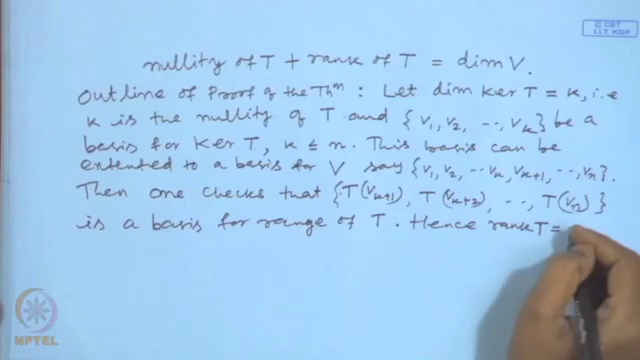 © CET
I.I.T. KGP
nullity of T + rank of T = dim V.
Outline of Proof of the Thm : Let dim Ker T = k, i.e
k is the nullity of T and {v1, v2, ---, vk} be a
basis for Ker T, k ≤ n. This basis can be
extented to a basis for V say {v1, v2, --- vk, vk+1, --, vn}.
Then one checks that {T(vk+1), T(vk+2), --, T(vn)}
is a basis for range of T. Hence rank T =
NPTEL